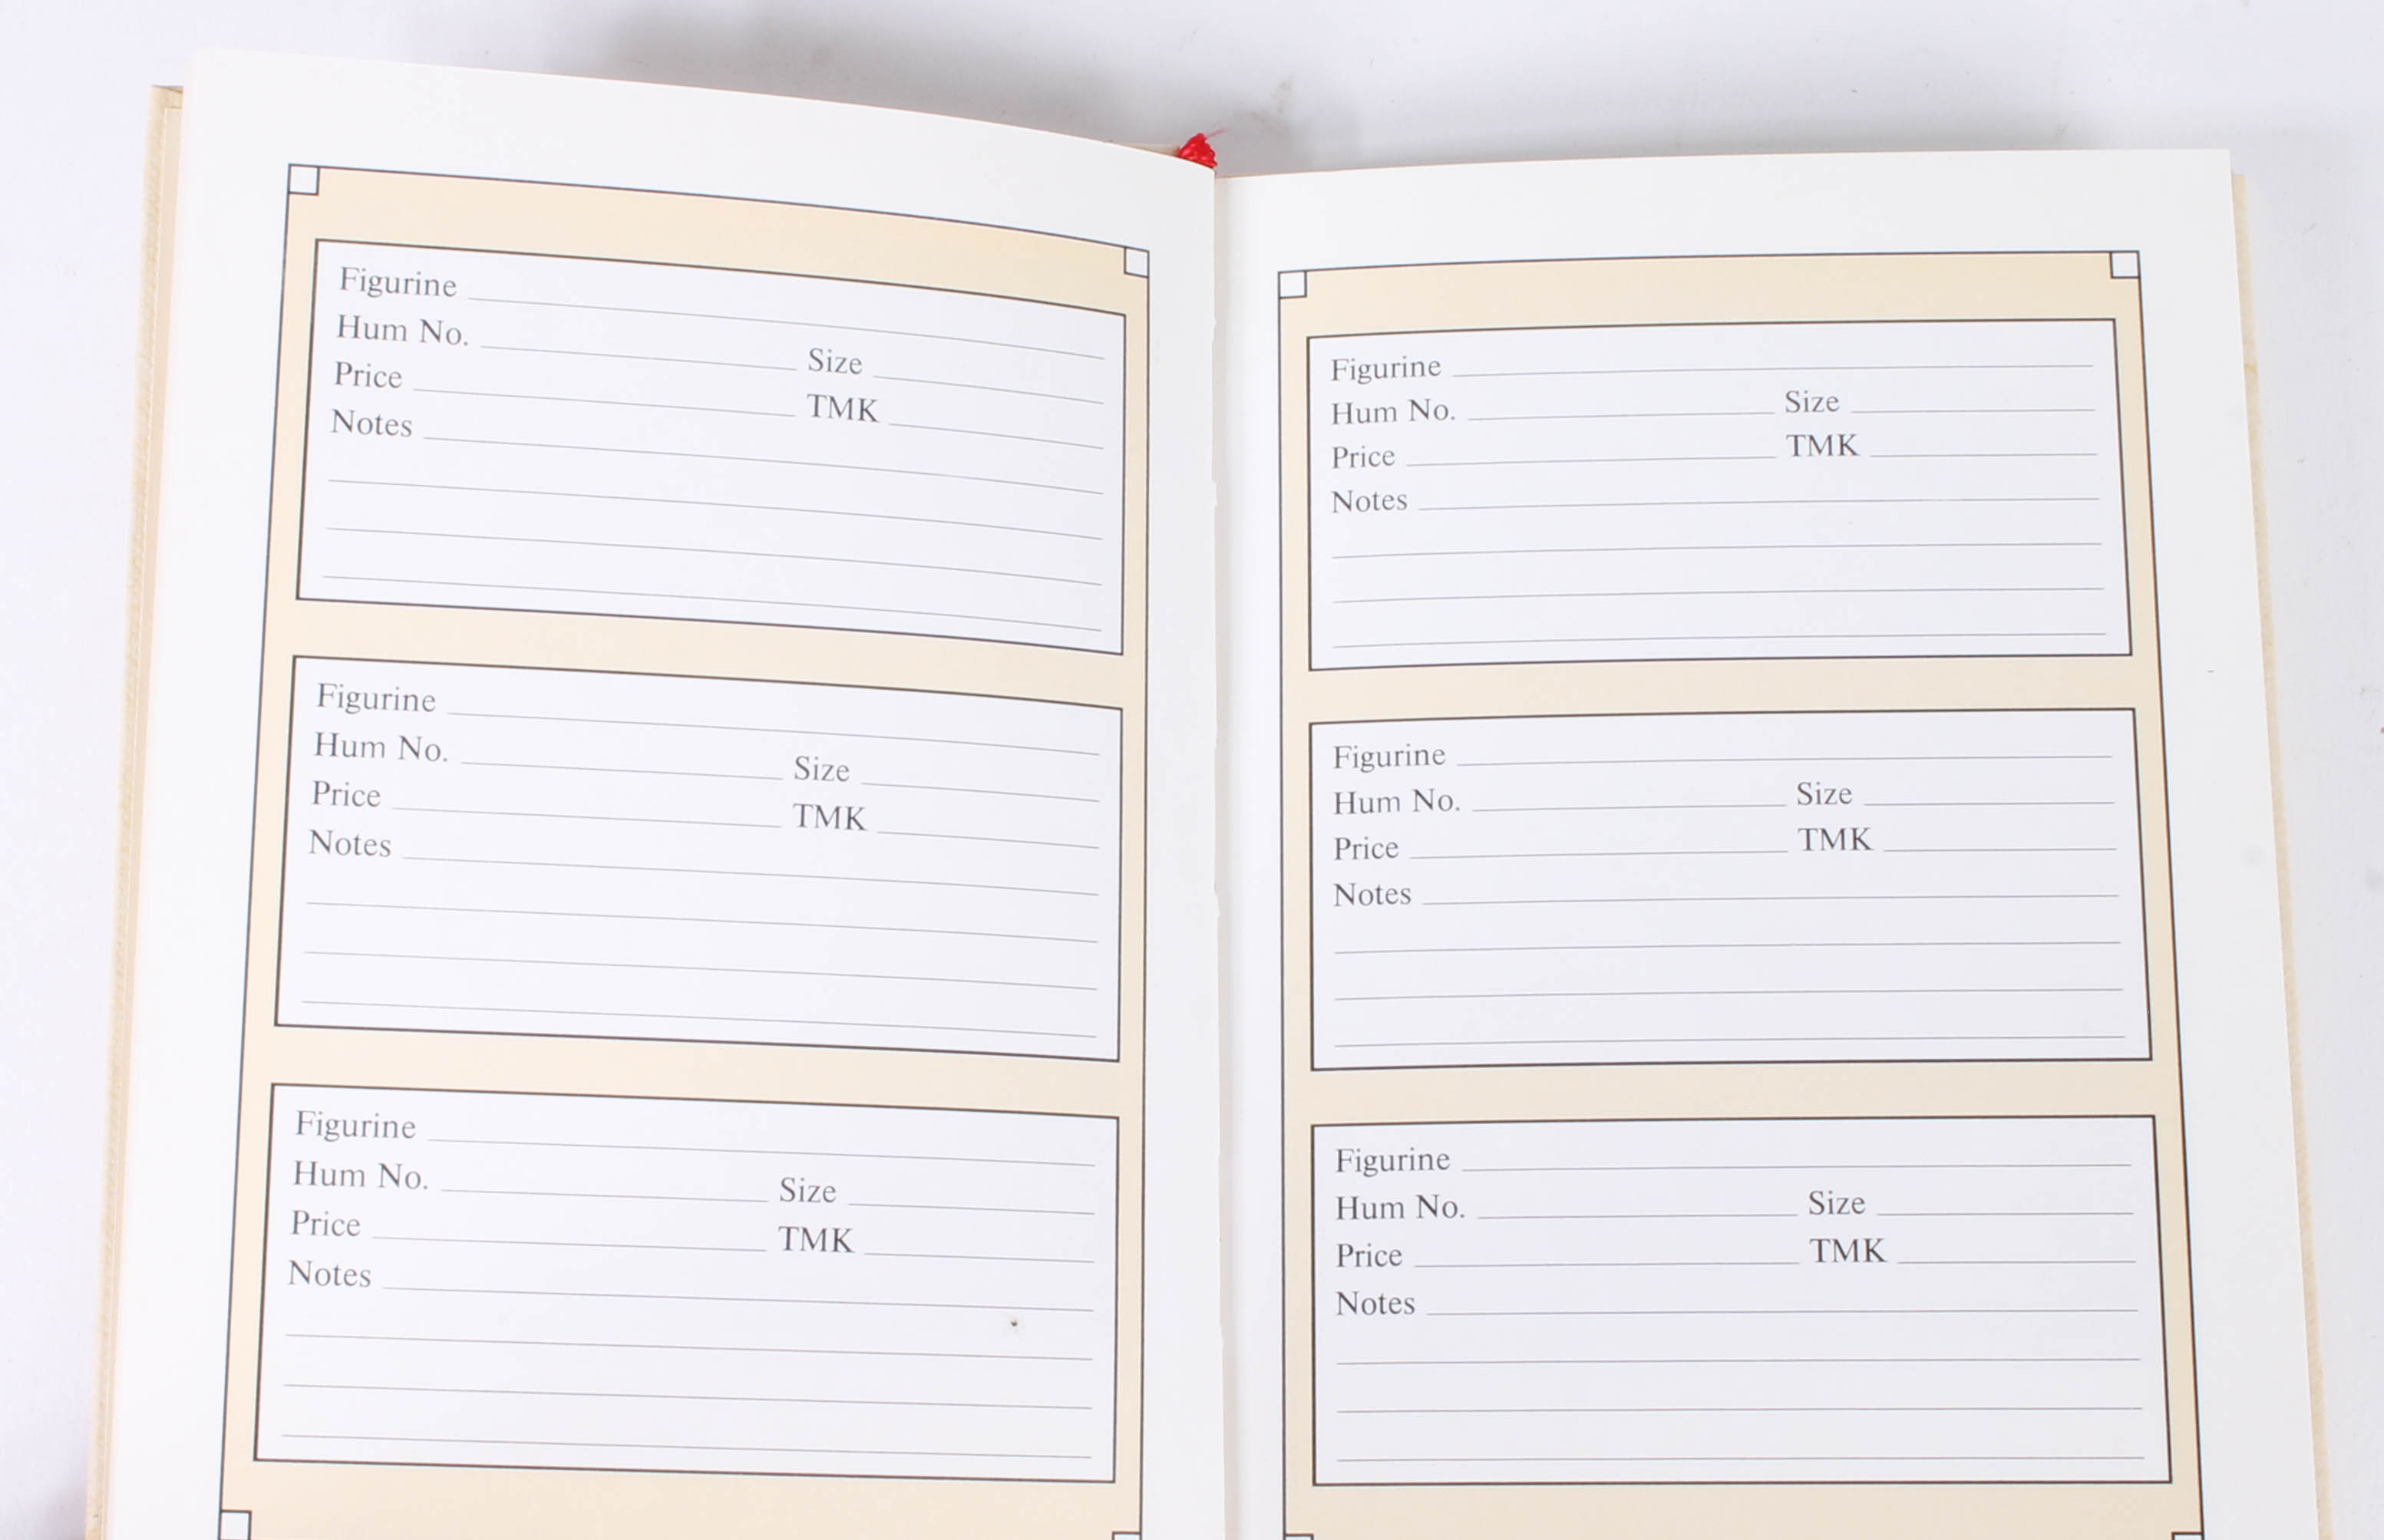 Figurine
Hum No. Size
Price TMK
Notes
Figurine
Hum No. Size
Price TMK
Notes
Figurine
Hum No. Size
Price TMK
Notes
Figurine
Hum No. Size
Price TMK
Notes
Figurine
Hum No. Size
Price TMK
Notes
Figurine
Hum No. Size
Price TMK
Notes